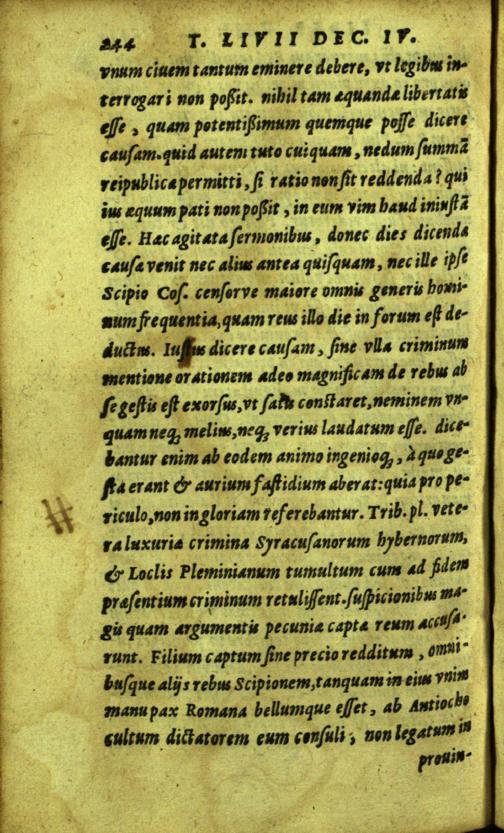 244 T. LIVII DEC. IV.
vnum ciuem tantum eminere debere, vt legibus in-
terrogari non poßit. nihil tam æquandæ libertatis
esse, quam potentißimum quemque posse dicere
causam. quid autem tuto cuiquam, nedum summã
reipublicæ permitti, si ratio non sit reddenda? qui
ius æquum pati non poßit, in eum vim haud iniustã
esse. Hæc agitata sermonibus, donec dies dicendæ
causæ venit nec alius antea quisquam, nec ille ipse
Scipio Cos. censorve maiore omnis generis homi-
num frequentia, quam reus illo die in forum est de-
ductus. Iussus dicere causam, sine vlla criminum
mentione orationem adeo magnificam de rebus ab
se gestis est exorsus, vt satis constaret, neminem vn-
quam neq; melius, neq; verius laudatum esse. dice-
bantur enim ab eodem animo ingenioq;, à quo ge-
sta erant & aurium fastidium aberat: quia pro pe-
riculo, non in gloriam referebantur. Trib. pl. vete-
ra luxuriæ crimina Syracusanorum hybernorum,
& Loclis Pleminianum tumultum cum ad fidem
præsentium criminum retulissent. suspicionibus ma-
gis quam argumentis pecuniæ captæ reum accusa-
runt. Filium captum sine precio redditum, omni-
busque alijs rebus Scipionem, tanquam in eius vnius
manu pax Romana bellumque esset, ab Antiocho
cultum dictatorem eum consuli, non legatum in
prouin-